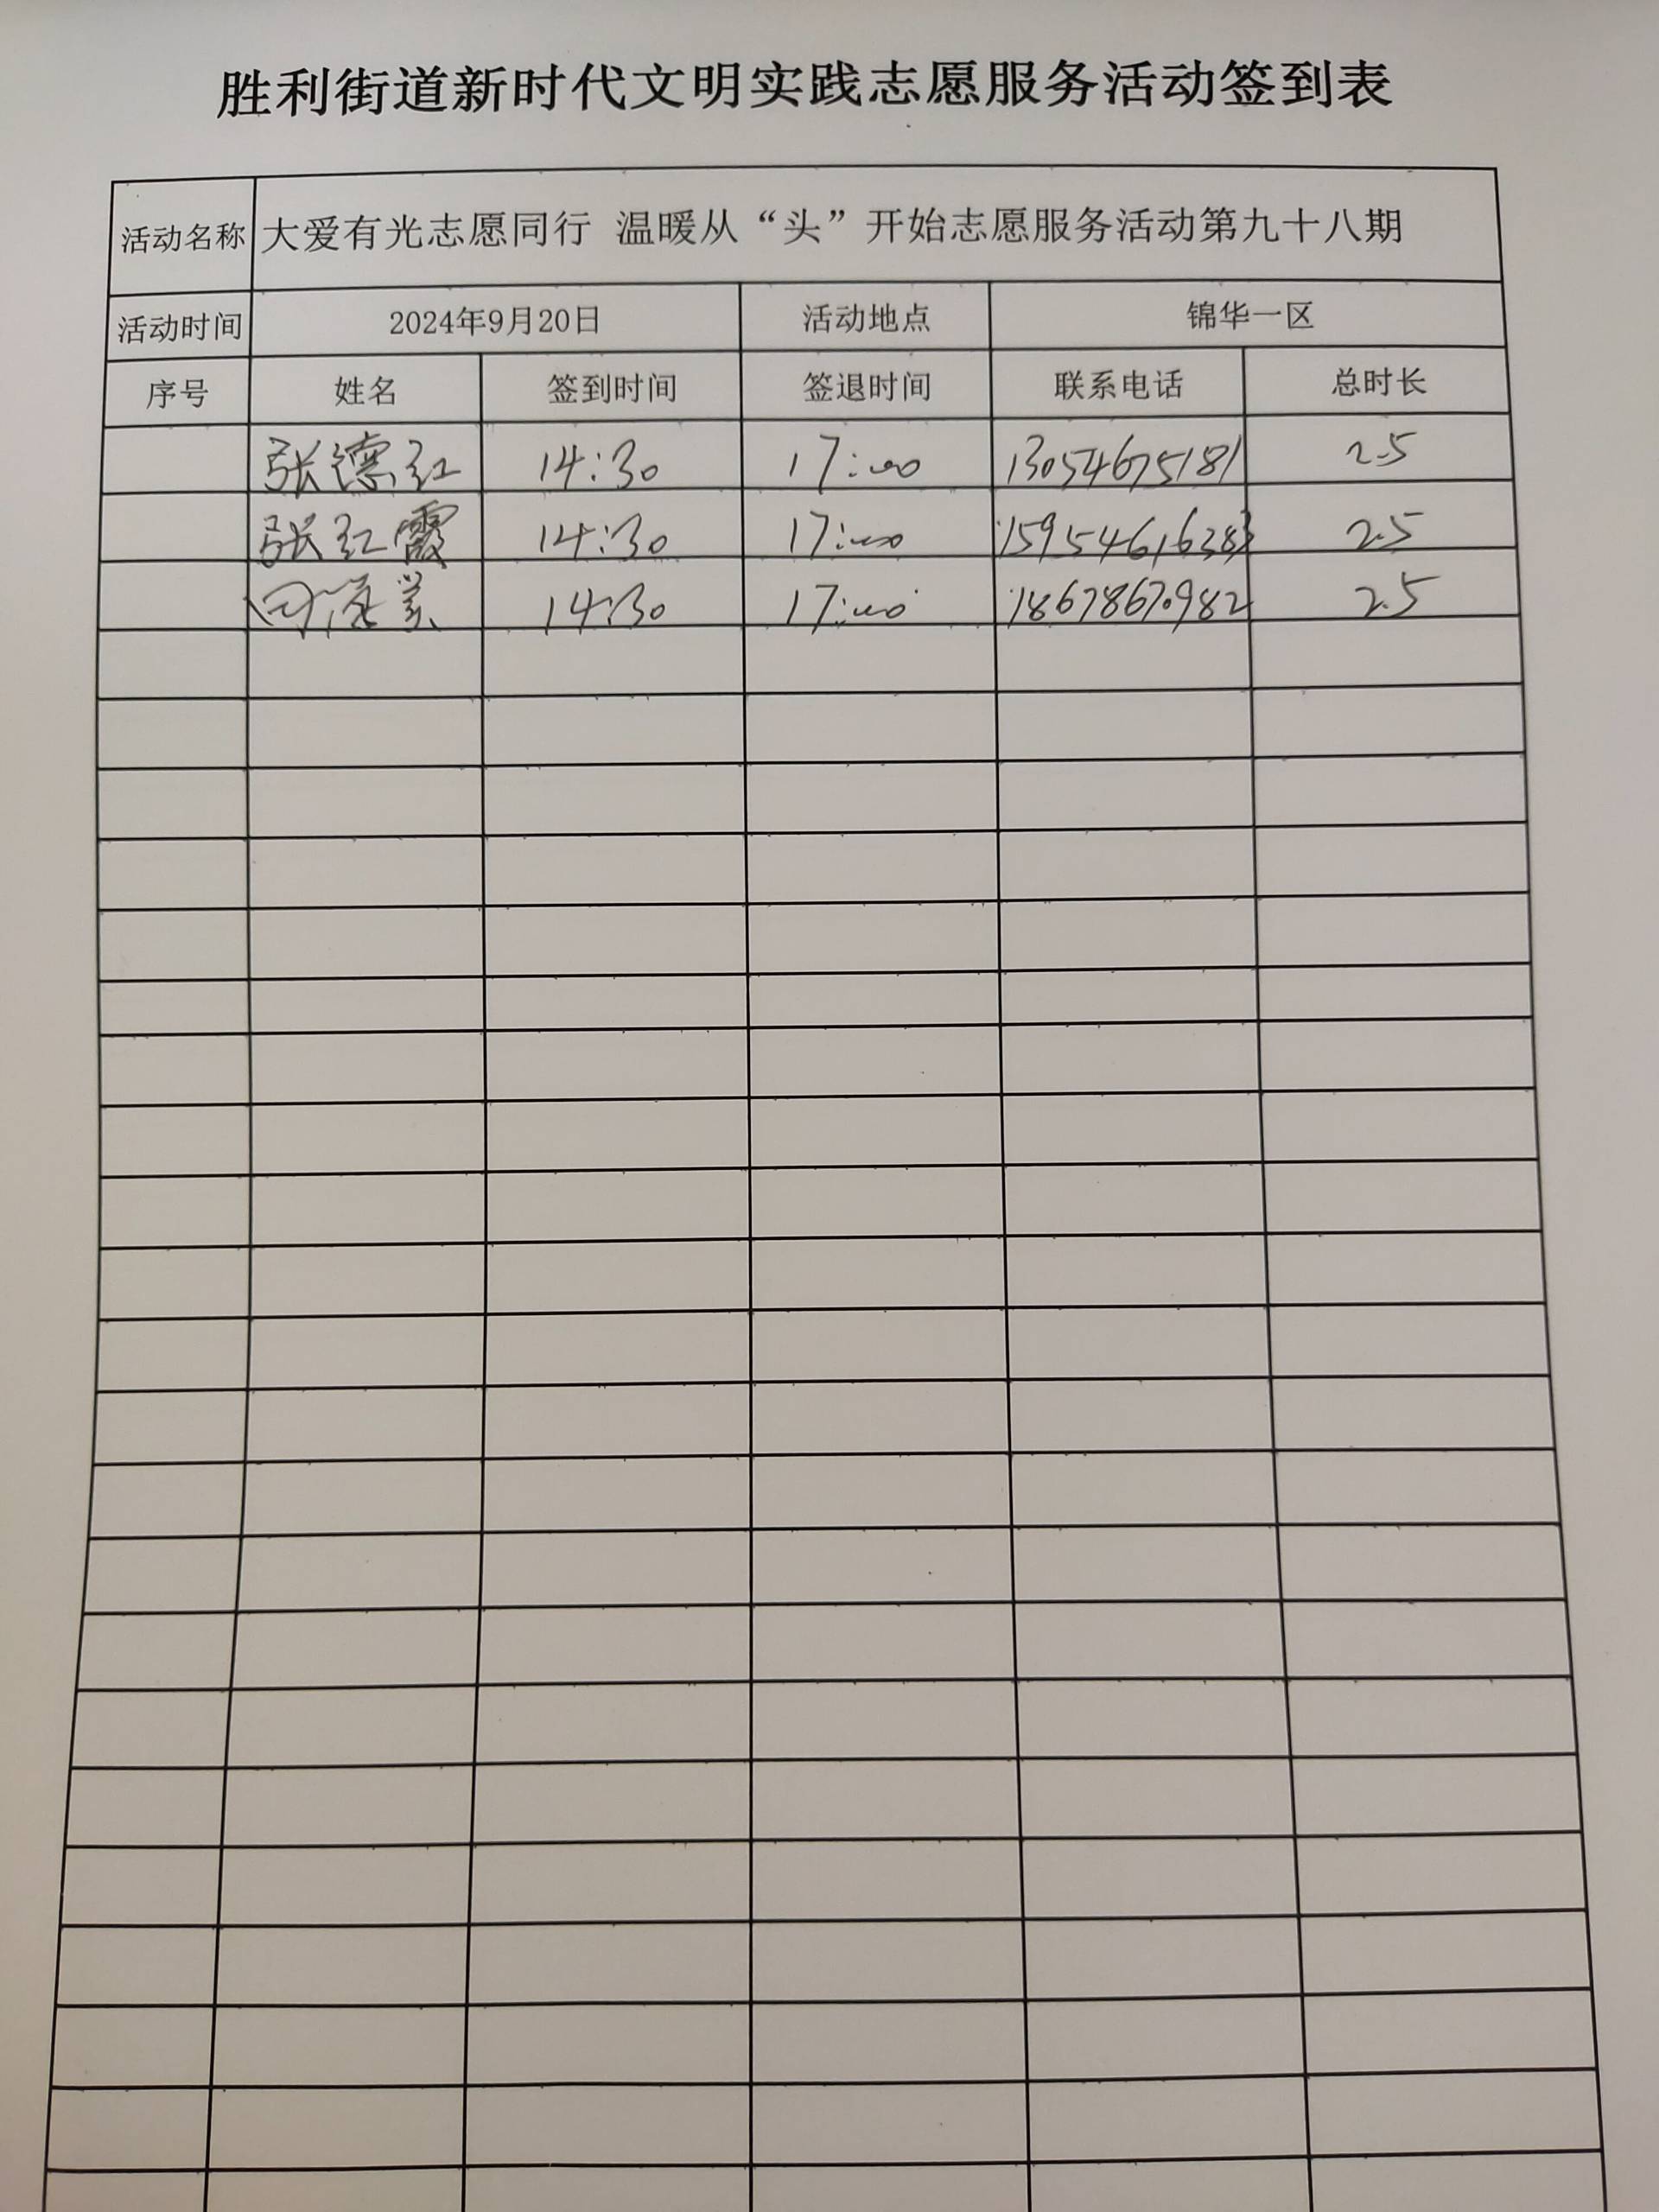 胜利街道新时代文明实践志愿服务活动签到表
活动名称 大爱有光志愿同行 温暖从“头”开始志愿服务活动第九十八期
活动时间 2024年9月20日 活动地点 锦华一区
序号 姓名 签到时间 签退时间 联系电话 总时长
张德红 14:30 17:00 13054675181 2.5
张红霞 14:30 17:00 15954616383 2.5
14:30 17:00 18678670982 2.5